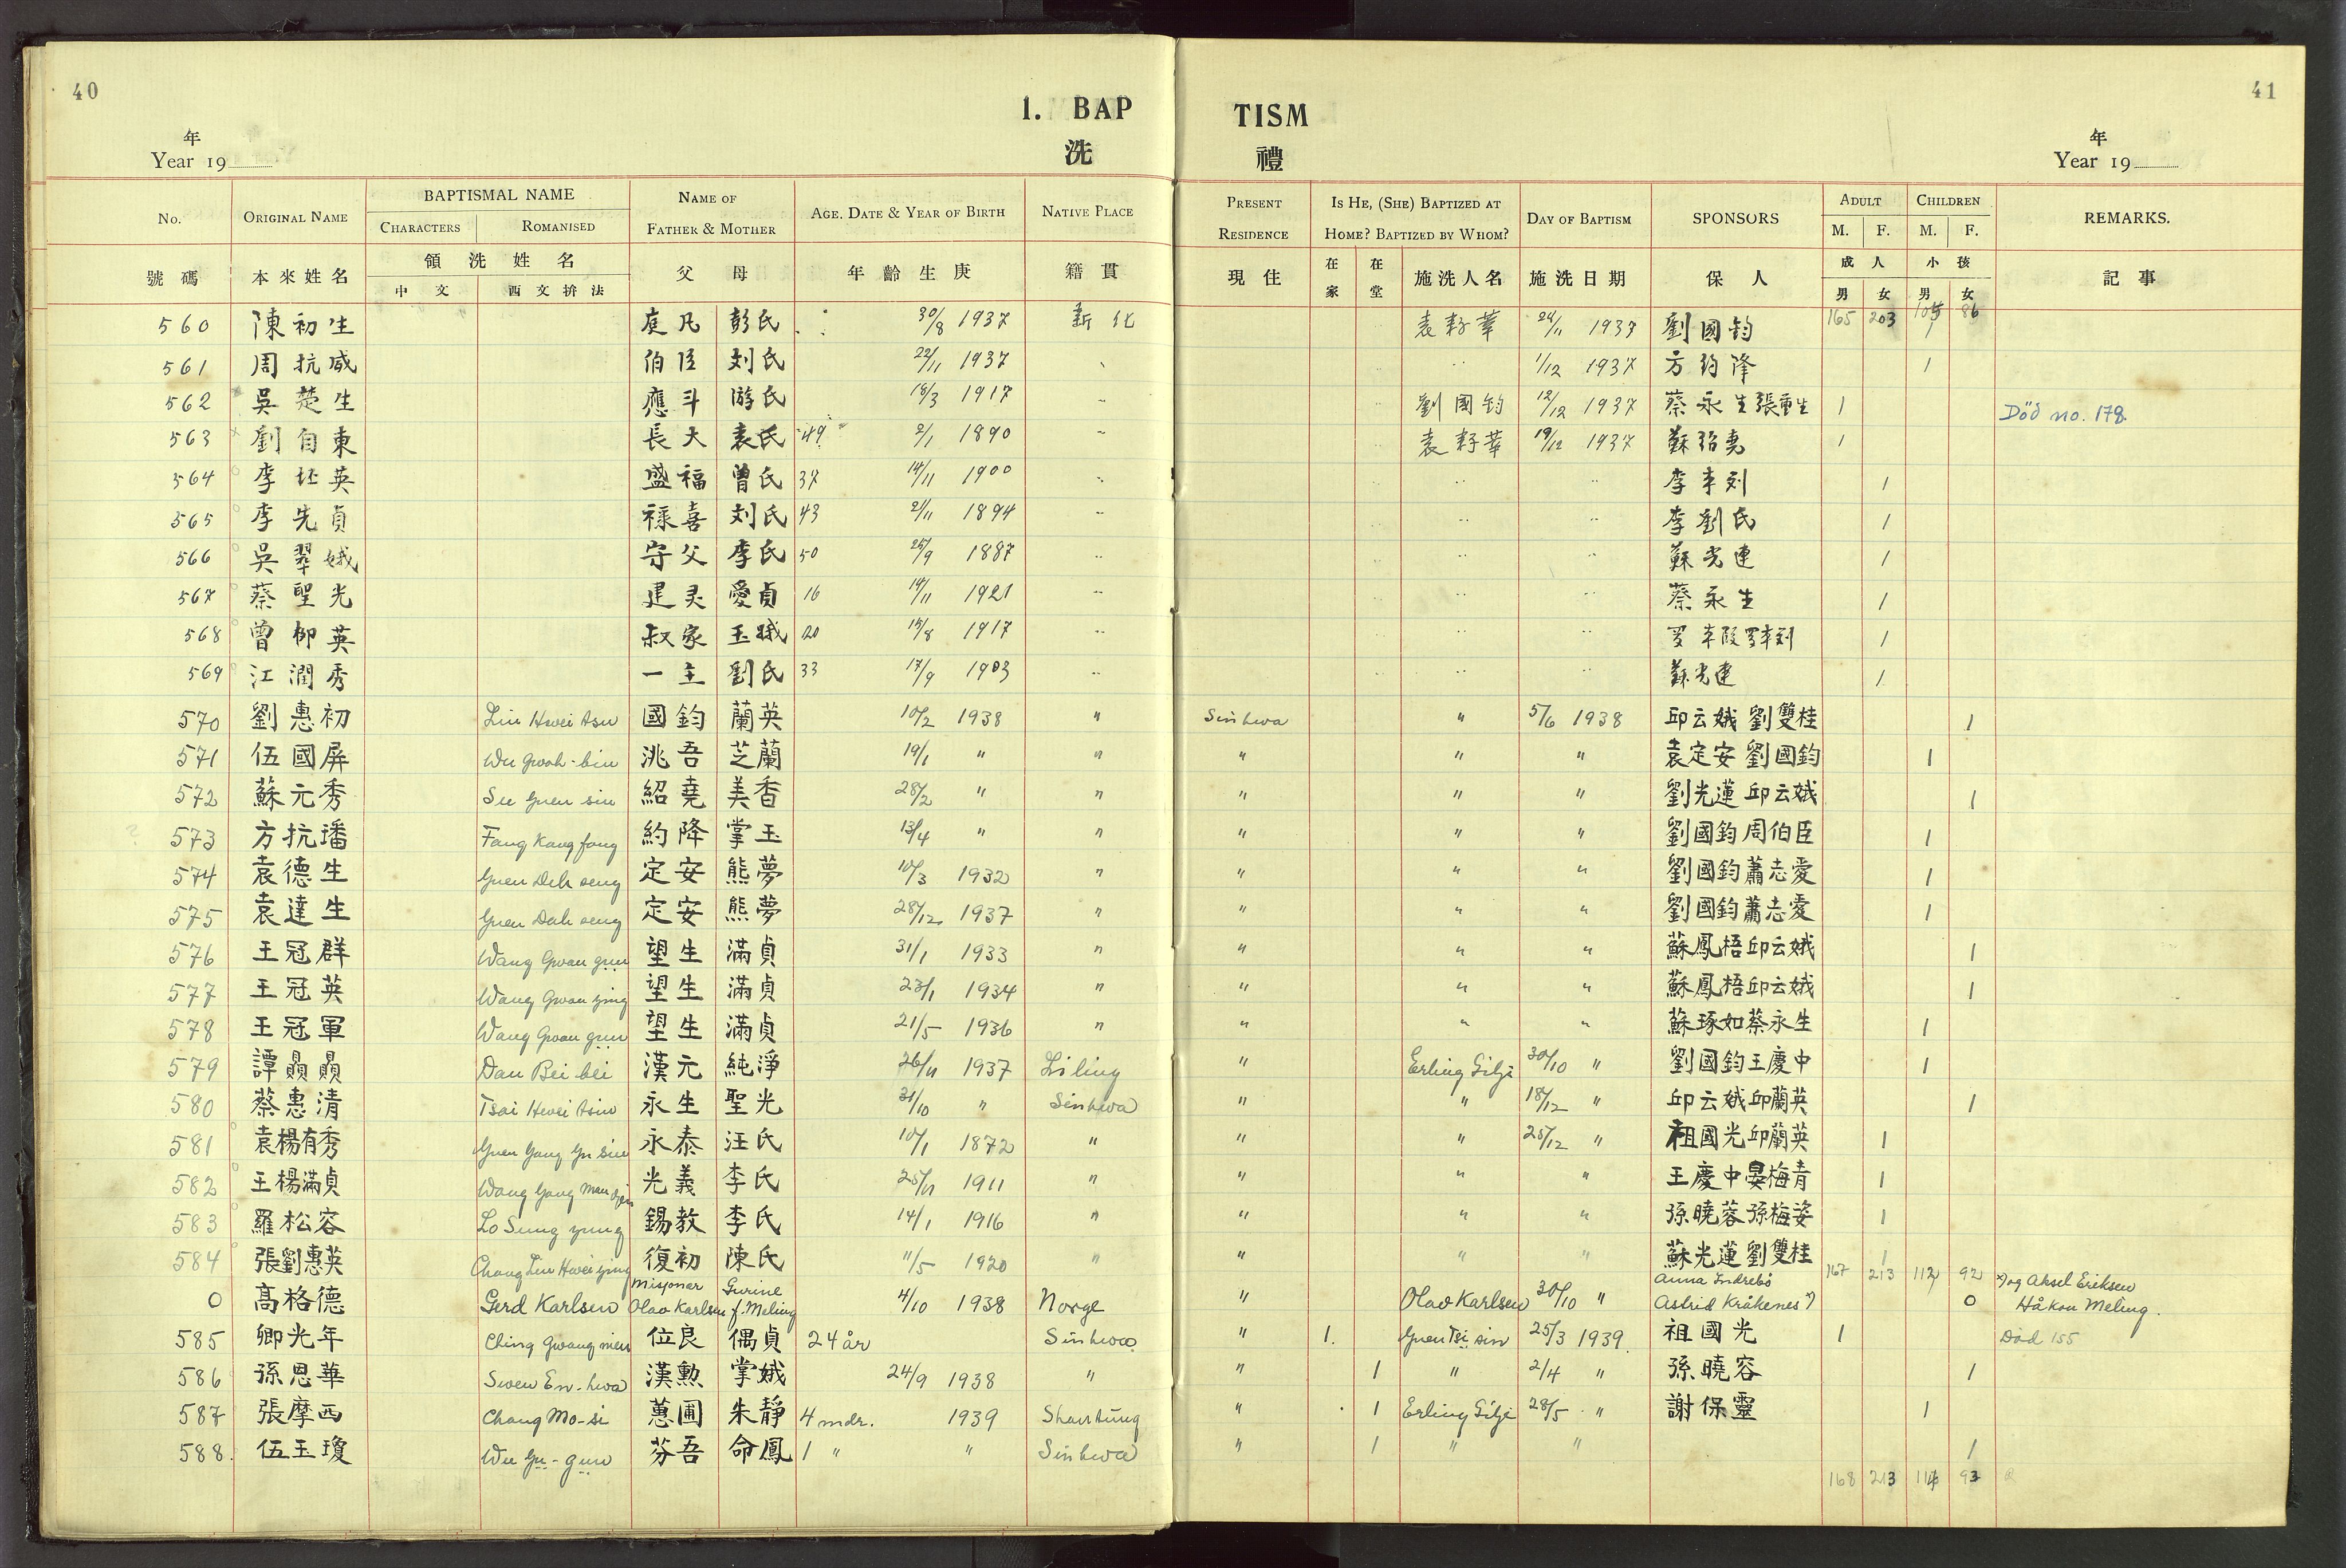 40
41
1. BAP
TISM
洗
禮
年
Year 19
年
Year 19
No. ORIGINAL NAME BAPTISMAL NAME NAME OF FATHER & MOTHER AGE, DATE & YEAR OF BIRTH NATIVE PLACE PRESENT RESIDENCE IS HE, (SHE) BAPTIZED AT HOME? BAPTIZED BY WHOM? DAY OF BAPTISM SPONSORS ADULT CHILDREN REMARKS.
CHARACTERS ROMANISED M. F. M. F.
號碼 本來姓名 領洗姓名 父 母 年齡生庚 籍貫 現住 在家 在堂 施洗人名 施洗日期 保人 成人 小孩 記事
中文 西文拚法 男 女 男 女
165 203 105 86
560 陳初生 庭凡 彭氏 30/8 1937 新化 袁籽華 24/11 1937 劉國鈞 1
561 周抗威 伯臣 刘氏 22/11 1937 1/12 1937 方約降 1
562 吳楚生 應斗 游氏 18/3 1917 劉國鈞 12/12 1937 蔡永生張重生 1 Död no. 178
563 劉自東 長大 袁氏 49 2/1 1890 袁籽華 19/12 1937 蘇紹堯 1
564 李英 盛福 曾氏 37 14/11 1900 李刘 1
565 李先貞 禄喜 刘氏 43 2/11 1894 李劉氏 1
566 吳翠娥 守父 李氏 50 25/9 1887 蘇光連 1
567 蔡聖光 建灵 愛貞 16 14/11 1921 蔡永生 1
568 曾柳英 叔家 玉娥 20 15/8 1917 1
569 江潤秀 一主 劉氏 33 17/9 1903 蘇光連 1
570 劉惠初 Liu Hwei tsu 國鈞 蘭英 10/2 1938 " Sinhwa " 5/6 1938 邱云娥 劉雙桂 1
571 伍國屏 Wu Gwoh-bin 洮吾 芝蘭 19/1 " " " " " 袁定安 劉國鈞 1
572 蘇元秀 Su Yuen siu 紹堯 美香 28/2 " " " " " 劉光蓮 邱云娥 1
573 方抗璠 Fang Kang fang 約降 掌玉 13/4 " " " " " 劉國鈞 周伯臣 1
574 袁德生 Yuen Deh seng 定安 熊夢 10/3 1932 " " " " 劉國鈞 蕭志愛 1
575 袁達生 Yuen Dah seng 定安 熊夢 28/12 1937 " " " " 劉國鈞 蕭志愛 1
576 王冠群 Wang Gwan gün 望生 滿貞 31/1 1933 " " " " 蘇鳳梧 邱云娥 1
577 王冠英 Wang Gwan ying 望生 滿貞 23/1 1934 " " " " 蘇鳳梧 邱云娥 1
578 王冠軍 Wang Gwan gün 望生 滿貞 21/5 1936 " " " " 蘇琢如 蔡永生 1
579 譚贔贔 Dan Bei bei 漢元 純淨 26/11 1937 Liling " Erling Gilje 30/10 " 劉國鈞 王慶中 1
580 蔡惠清 Tsai Hwei tsin 永生 聖光 31/10 " Sinhwa " " 18/12 " 邱云娥 邱蘭英 1
581 袁楊有秀 Yuen Yang Yu siu 永泰 汪氏 10/1 1872 " " " 25/12 " 祖國光 邱蘭英 1
582 王楊滿貞 Wang Yang Man 光義 李氏 25/11 1911 " " " " 王慶中 晏梅青 1
583 羅松容 Lo Sung yung 錫教 李氏 14/1 1916 " " " " 孫曉蓉 孫梅姿 1
584 張劉惠英 Chang Liu Hwei ying 復初 陳氏 11/5 1920 " " " " 蘇光蓮 劉雙桂 1
167 213 112 92
0 高格德 Gerd Karlsen Misjonær Olav Karlsen Gurine f. Meling 4/10 1938 Norge " Olav Karlsen 30/10 " Anna Indrebö Astrid Kråkenes *) 0 *) og Aksel Eriksen Håkon Meling.
585 卿光年 Ching Gwang nien 位良 偶貞 24 år Sinhwa " 1. Yuen Tsi sin 25/3 1939. 祖國光 1 Död 155
586 孫恩華 Swen En-hwa 漢勳 掌娥 24/9 1938 " " 1 " 2/4 " 孫曉容 1
587 張摩西 Chang Mo-si 蕙圃 朱靜 4 mdr. 1939 Shantung " 1 Erling Gilje 28/5 " 謝保靈 1
588. 伍玉瓊 Wu Yü-gün 芬吾 命鳳 1 " " Sinhwa " 1 " " 1
168 213 114 93